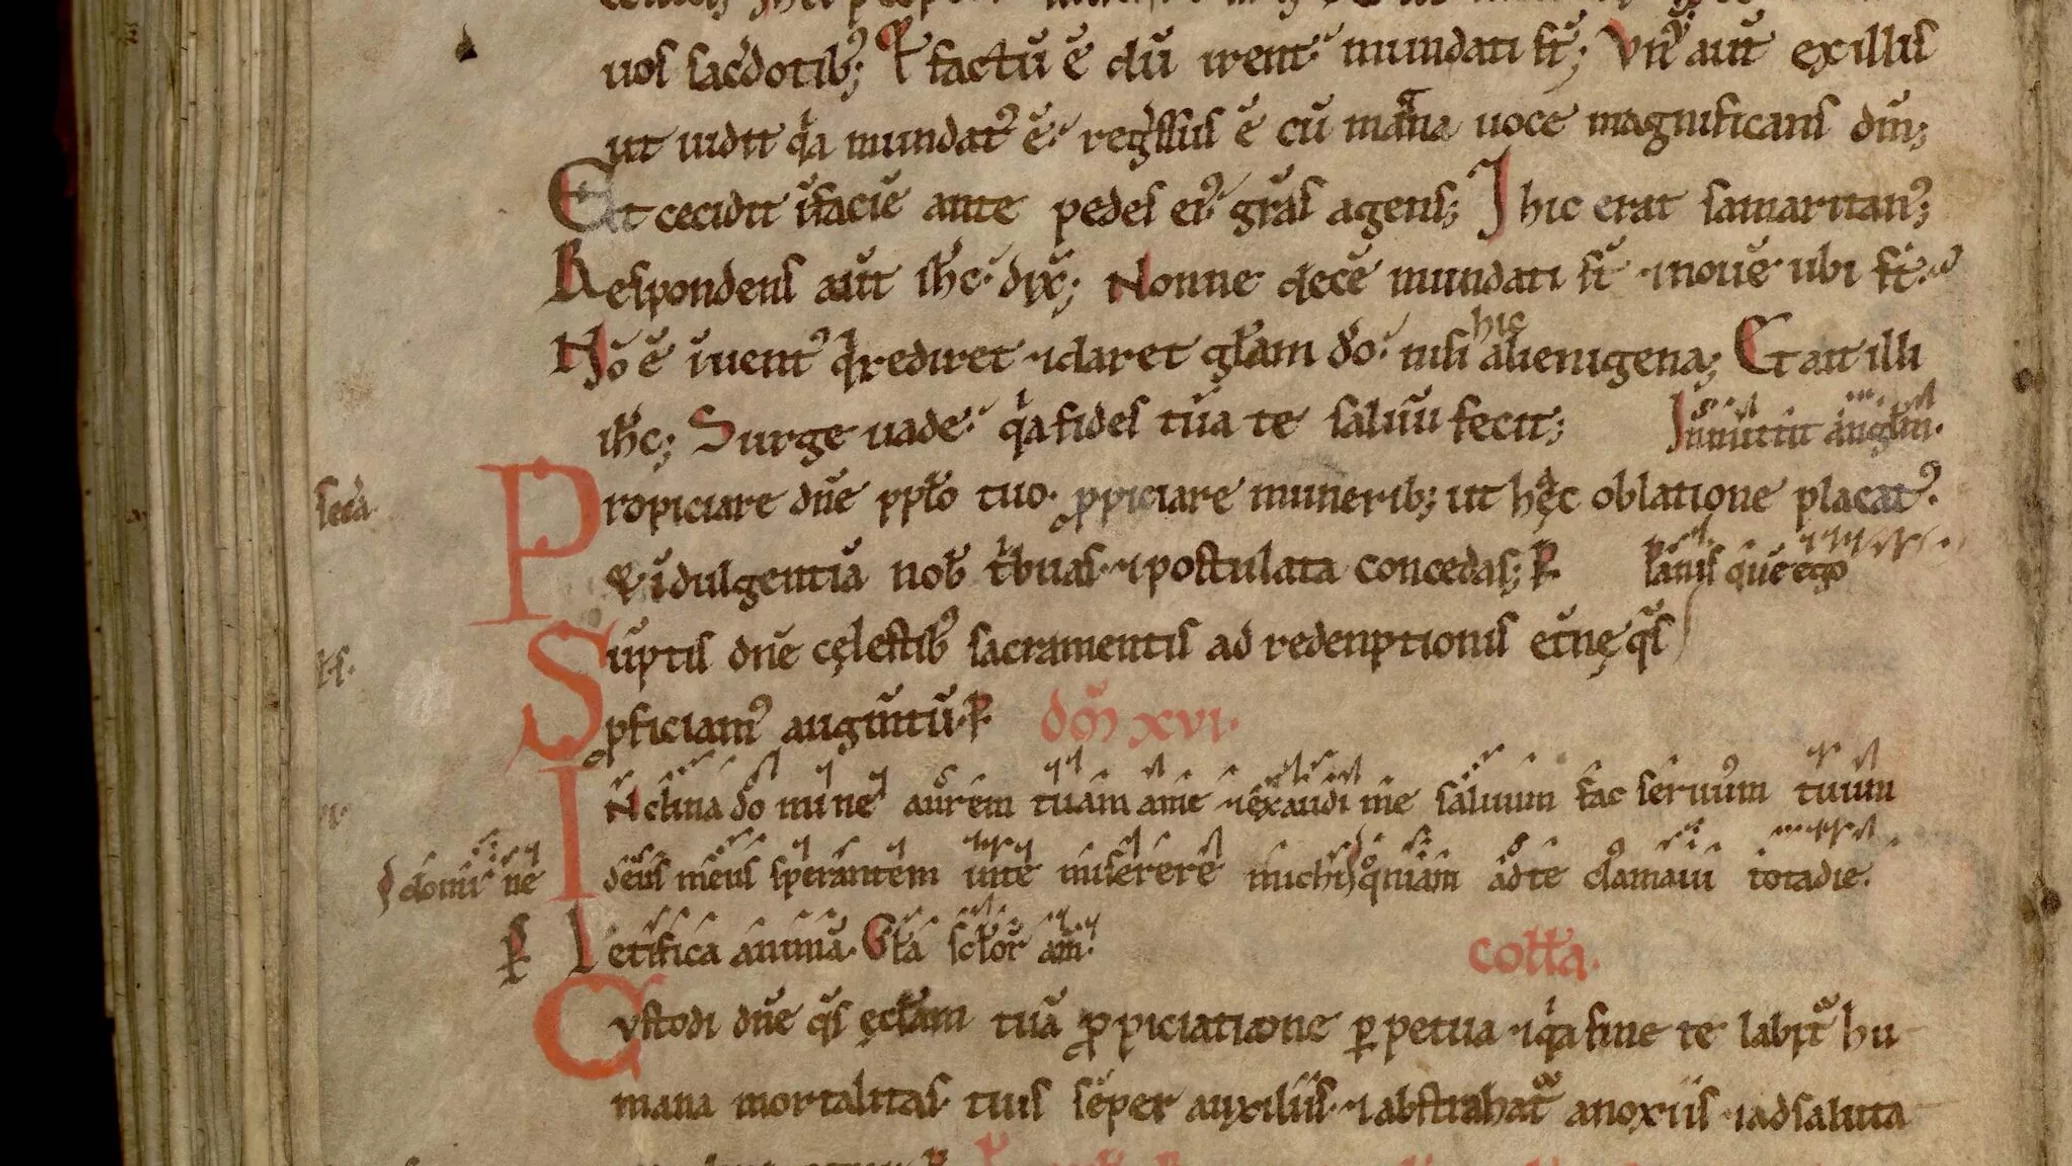 uos sacdotib; Et factū ē dū irent mundati st̄; Vn' aūt ex illis
ut uidit qa mundat' ē regssus ē cū magna uoce magnificans dm̄;
Et cecidit ī faciē ante pedes ei' gr̄as agens; ⁊ hic erat samaritan';
Respondens aūt ih̄c dix̄; Nonne decē mundati st̄ ⁊ nouē ubi st̄
Nō ē īuent' q rediret ⁊ daret gl̄am dō nisi hic alienigena; Et ait illi
ih̄c; Surge uade qa fides tua te saluū fecit; Inmittit angl̄m.
secd̄a. Propiciare dn̄e ppl̄o tuo ꝓpiciare munerib; ut hac oblatione placat'.
⁊ īdulgentiā nob̄ tbuas ⁊ postulata concedas; P. Panis quē ego
Sūptis dn̄e cęlestib' sacramentis ad redemptionis et̄nę qs̄
ꝓficiam' augm̄tū. P. dōm xvi.
INclina domine aurem tuam ad me ⁊ exaudi me saluum fac seruum tuum
deus meus sperantem in te miserere michi domine qm̄iam ad te clamaui tota die.
P Letifica animā. Gl̄a scl̄or am̄.
coll̄a.
Custodi dn̄e qs̄ ęccl̄am tuā ꝓpiciatione ꝑpetua ⁊ qa sine te labit' hu
mana mortalitas tuis sēper auxiliis ⁊ abstrahat' a noxiis ⁊ ad saluta